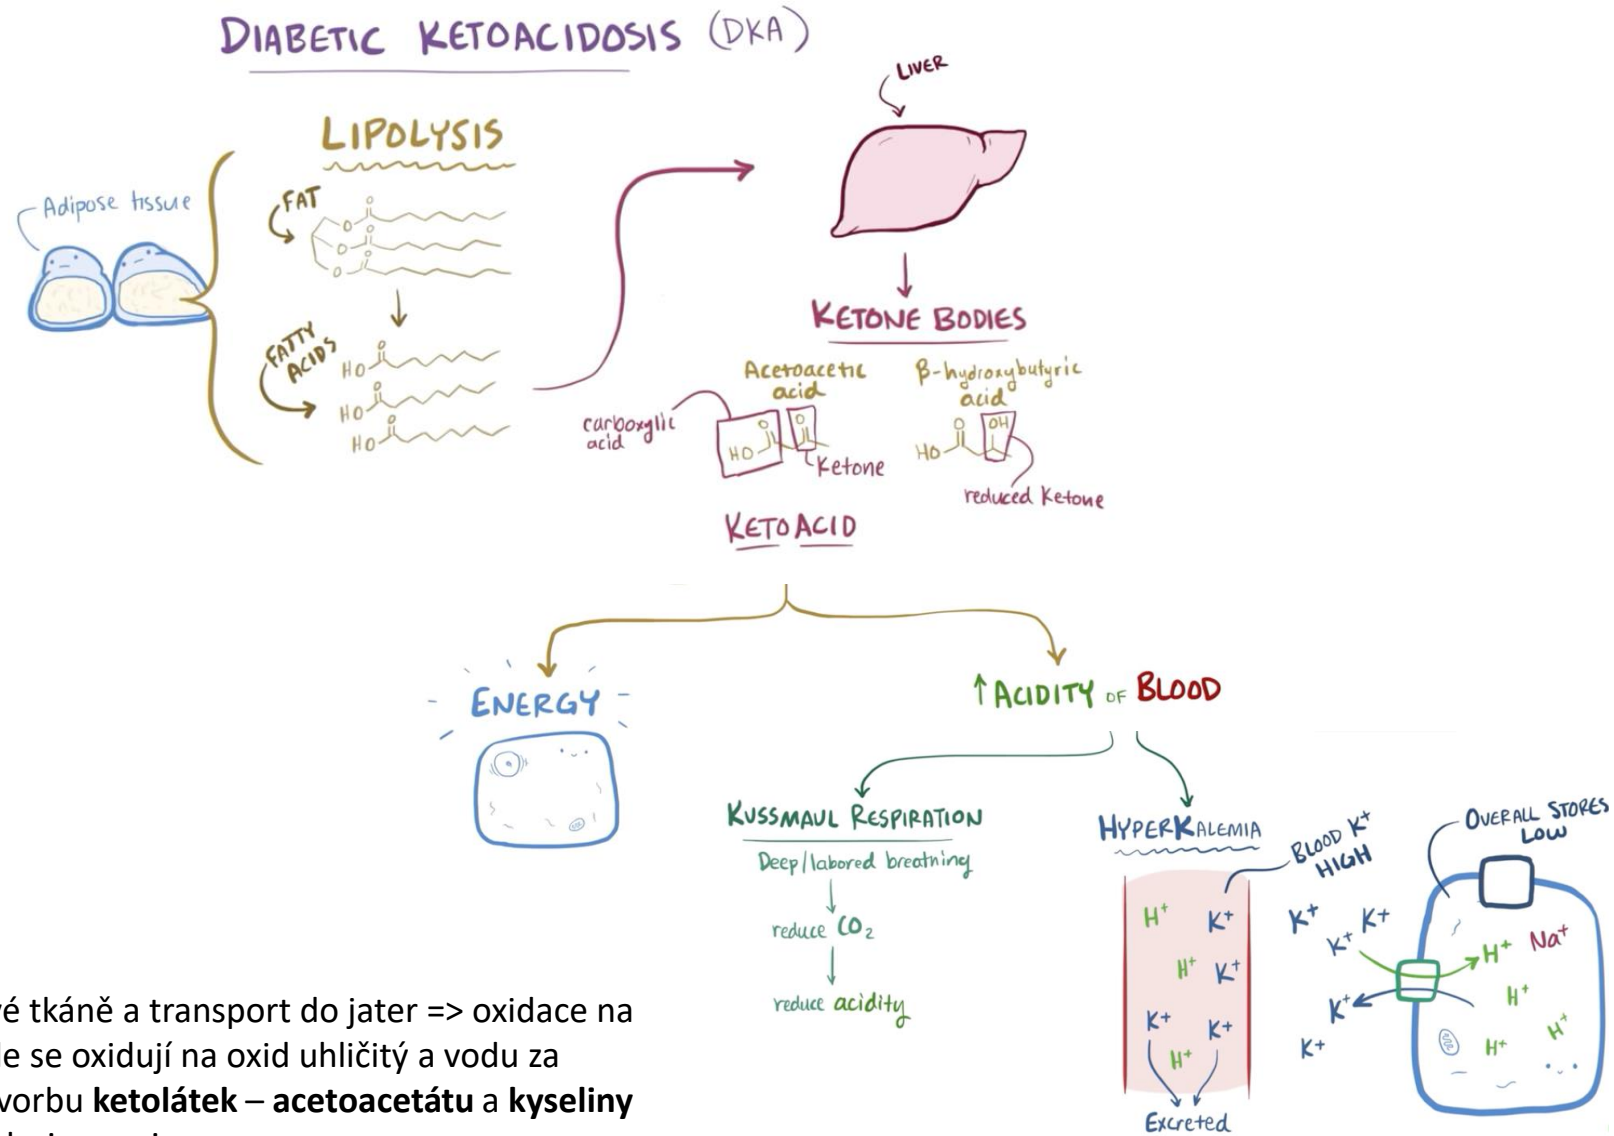 DIABETIC KETOACIDOSIS (DKA)
LIVER
LIPOLYSIS
Adipose tissue
FAT
O
O
O
O
O
O
FATTY
ACIDS
HO
O
HO
O
HO
O
KETONE BODIES
Acetoacetic
acid
β-hydroxybutyric
acid
carboxylic
acid
O
O
HO
Ketone
O
OH
HO
reduced Ketone
KETOACID
ENERGY
↑ ACIDITY OF BLOOD
KUSSMAUL RESPIRATION
Deep/labored breathing
reduce CO2
reduce acidity
HYPERKALEMIA
BLOOD K+
HIGH
OVERALL STORES
LOW
H+ K+
H+ K+
K+ K+
H+
Excreted
K+ K+
K+
K+
K+
H+ Na+
H+
H+
H+
vé tkáně a transport do jater => oxidace na
le se oxidují na oxid uhličitý a vodu za
vorbu ketolátek – acetoacetátu a kyseliny